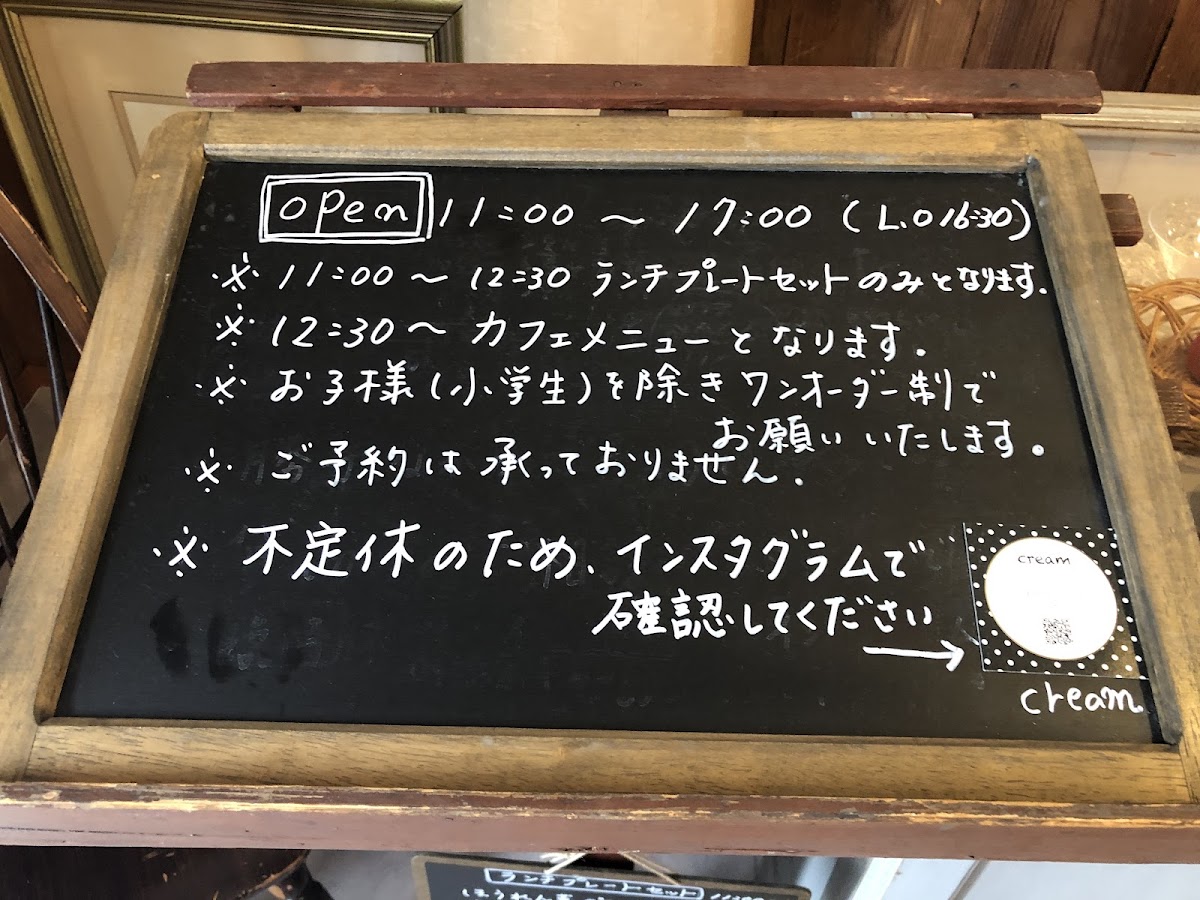 open 11:00 〜 17:00 (L.O 16:30)
※ 11:00 〜 12:30 ランチプレートセットのみとなります.
※ 12:30〜 カフェメニューとなります.
※ お子様(小学生)を除きワンオーダー制で
お願いいたします。
※ ご予約は承っておりません.
※ 不定休のため、インスタグラムで
確認してください
→
cream
cream
ランチプレートセット